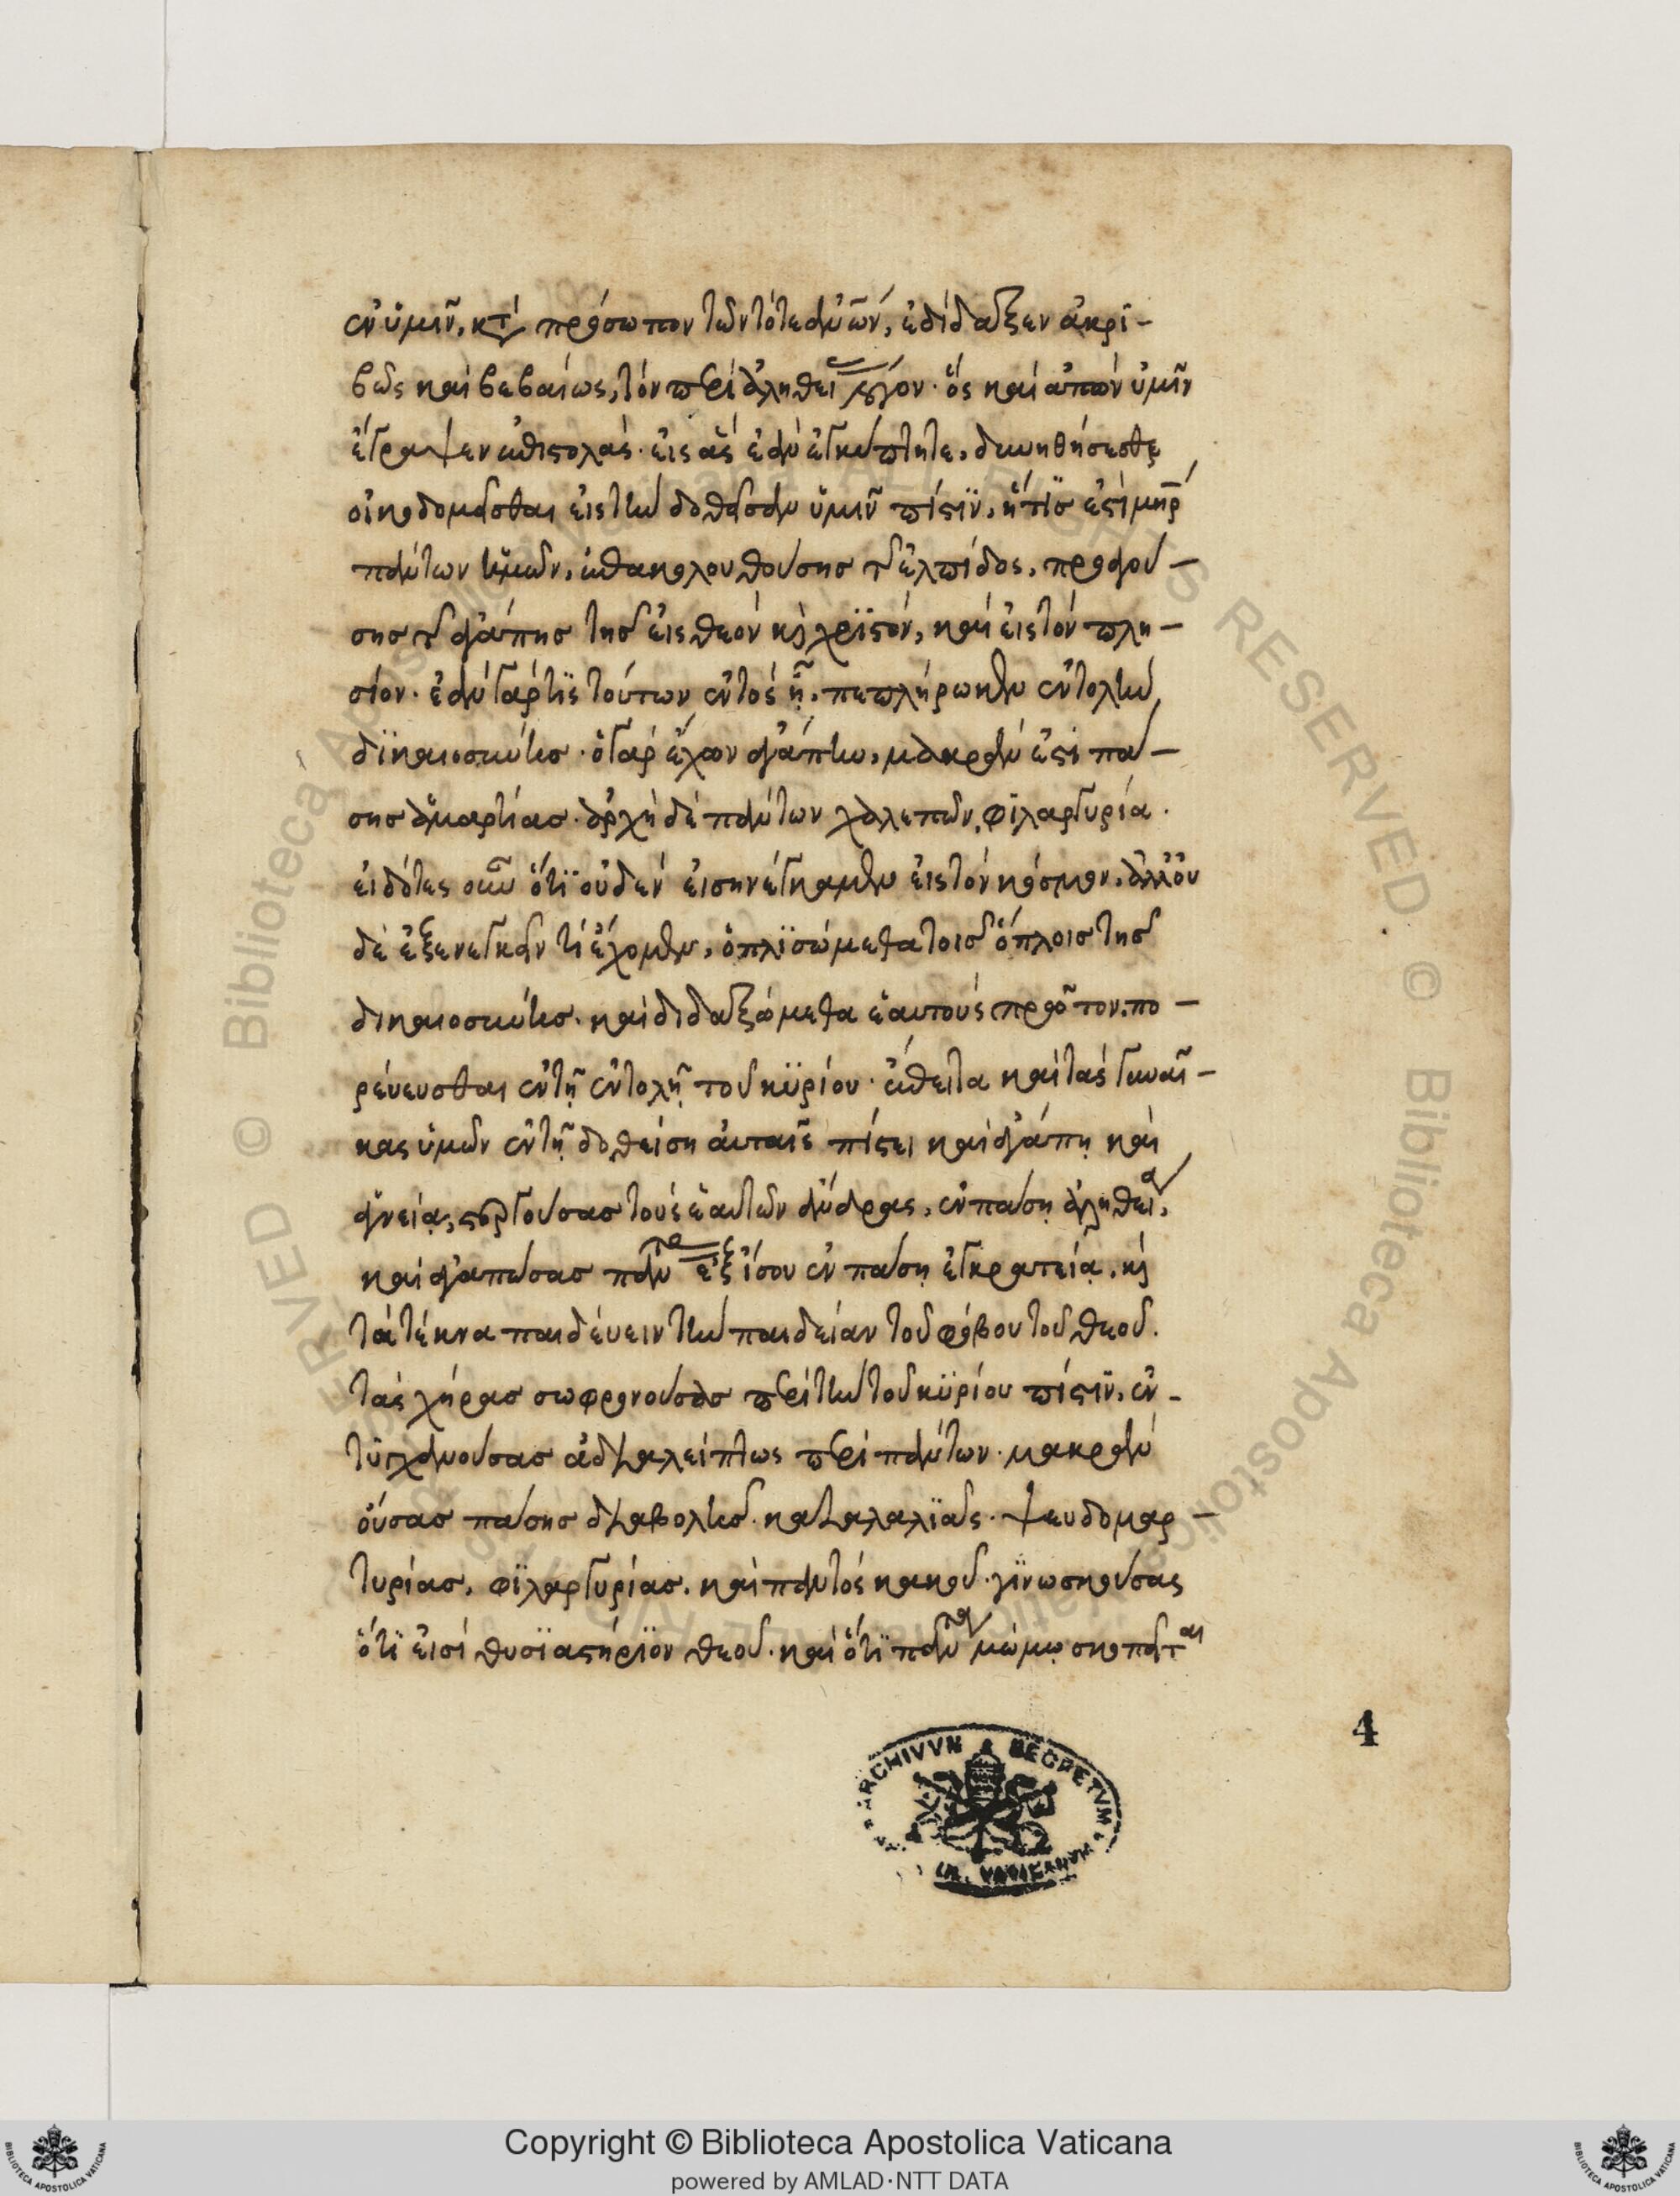 ἐν ὑμῖν, κτ πρόσωπον τῶν τότε ἀνῶν, ἐδίδαξεν ἀκρι-
βῶς καὶ βεβαίως, τὸν περὶ ἀληθείας λόγον. ὃς καὶ ἀπὼν ὑμῖν
ἔγραψεν ἐπιστολάς. εἰς ἃς ἐὰν ἐγκύπτητε, δυνηθήσεσθε
οἰκοδομεῖσθαι εἰς τὴν δοθεῖσαν ὑμῖν πίστιν, ἥτις ἐστὶ μηρ
πάντων ὑμῶν, ἐπακολουθούσης τῆς ἐλπίδος, προαγού-
σης τῆς ἀγάπης τῆς εἰς θεὸν κ χριστόν, καὶ εἰς τὸν πλη-
σίον. ἐὰν γάρ τις τούτων ἐντὸς ᾖ, πεπλήρωκεν ἐντολὴν
δικαιοσύνης. ὁ γὰρ ἔχων ἀγάπην, μακράν ἐστι πά-
σης ἁμαρτίας. ἀρχὴ δὲ πάντων χαλεπῶν, φιλαργυρία.
εἰδότες οὖν ὅτι οὐδὲν εἰσηνέγκαμεν εἰς τὸν κόσμον, ἀλλ' οὐ
δὲ ἐξενεγκεῖν τι ἔχομεν, ὁπλισώμεθα τοῖς ὅπλοις τῆς
δικαιοσύνης. καὶ διδαξώμεθα ἑαυτοὺς πρῶτον, πο-
ρεύευσθαι ἐν τῇ ἐντολῇ τοῦ κυρίου. ἔπειτα καὶ τὰς γυναῖ-
κας ὑμῶν ἐν τῇ δοθείση αὐταῖς πίστει καὶ ἀγάπῃ καὶ
ἁγνείᾳ, στεργούσας τοὺς ἑαυτῶν ἄνδρας, ἐν πάσῃ ἀληθεία,
καὶ ἀγαπώσας πάντας ἐξ ἴσου ἐν πάσῃ ἐγκρατείᾳ. κ
τὰ τέκνα παιδεύειν τὴν παιδείαν τοῦ φόβου τοῦ θεοῦ.
τὰς χήρας σωφρονούσας περὶ τὴν τοῦ κυρίου πίστιν, ἐν-
τυγχανούσας ἀδιαλείπτως περὶ πάντων. μακρὰν
οὔσας πάσης διαβολῆς. καταλαλιᾶς. ψευδομαρ-
τυρίας, φιλαργυρίας. καὶ παντὸς κακοῦ. γινωσκούσας
ὅτι εἰσὶ θυσιαστήριον θεοῦ. καὶ ὅτι πάντα μώμῳ σκοπεῖται
4
ARCHIVVM SECRETVM
VATICANVM
© Biblioteca Apostolica Vaticana ALL RIGHTS RESERVED
Copyright © Biblioteca Apostolica Vaticana
powered by AMLAD·NTT DATA